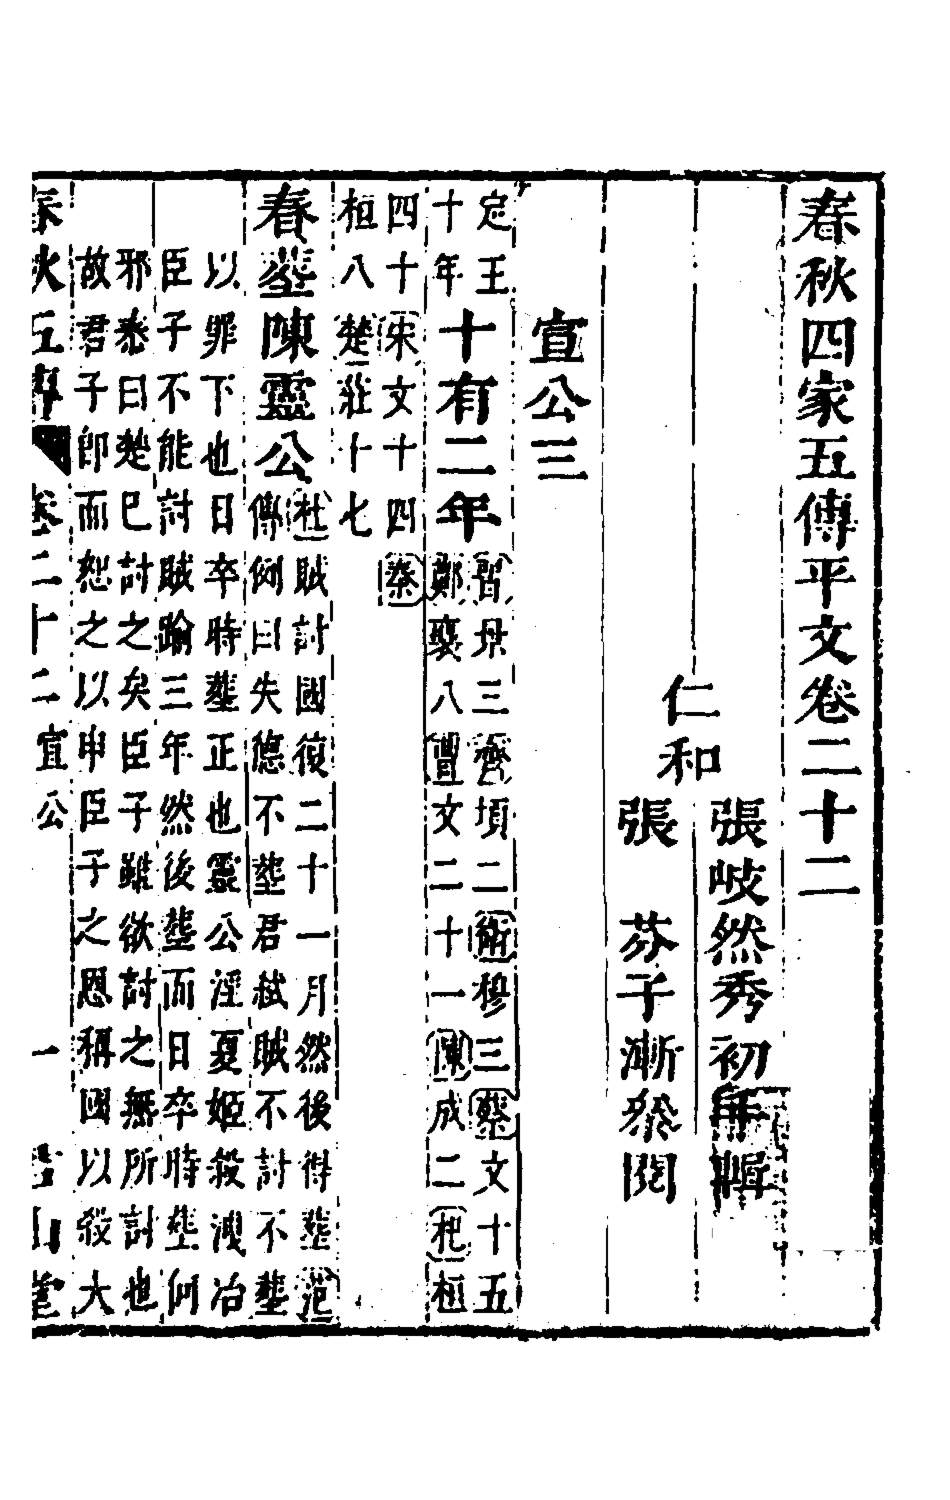 春秋四家五傳平文卷二十二
仁和
張岐然秀初 輯
張　芬子漸叅閱
宣公三
定王
十年
十有二年
晉景三齊頃二衛穆三蔡文十五
鄭襄八曹文二十一陳成二杞桓
四十宋文十四秦
桓八楚莊十七
春葬陳靈公
杜賊討國復二十一月然後得葬范
傳例曰失德不葬君弑賊不討不葬
以罪下也日卒時葬正也靈公淫夏姬殺洩冶
臣子不能討賊踰三年然後葬而日卒時葬何
邪泰曰楚已討之矣臣子雖欲討之無所討也
故君子卽而恕之以申臣子之恩稱國以殺大
春秋五傳 卷二十二宣公 一 山堂